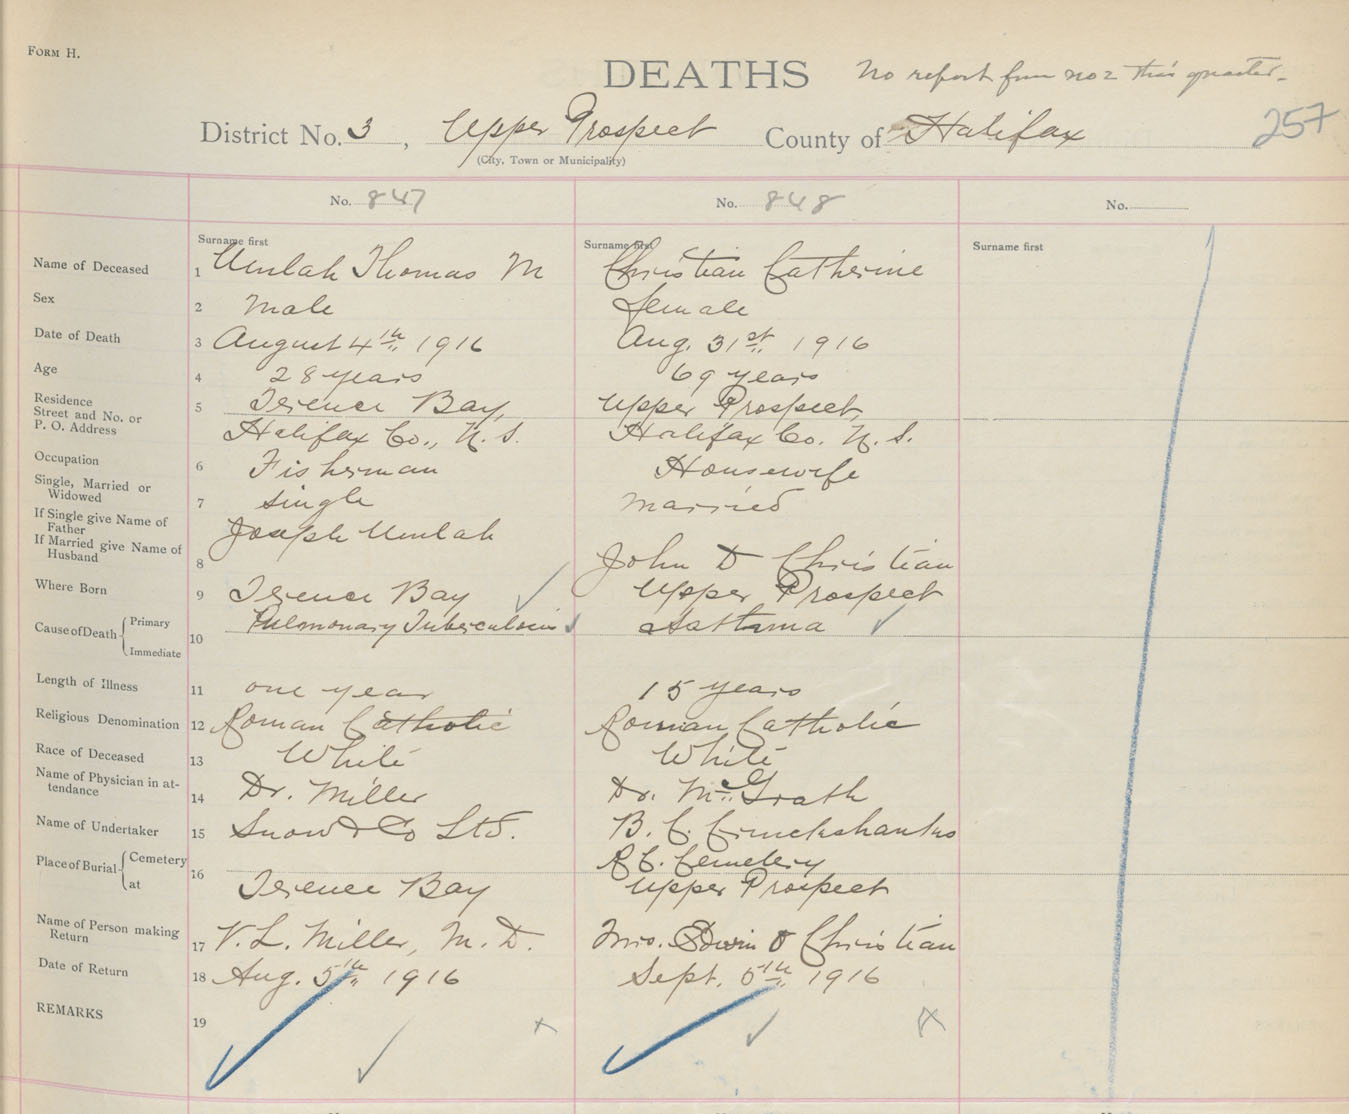 FORM H.
DEATHS No report from no 2 this quarter.
District No. 3, Upper Prospect County of Halifax 257
(City, Town or Municipality)
No. 847 No. 848 No.
Surname first Surname first Surname first
Name of Deceased 1 Umlah Thomas M Christian Catherine
Sex 2 Male female
Date of Death 3 August 4th 1916 Aug. 31st 1916
Age 4 28 years 69 years
Residence
Street and No. or
P. O. Address
5 Terence Bay, Upper Prospect,
Halifax Co., N. S. Halifax Co. N. S.
Occupation 6 Fisherman Housewife
Single, Married or
Widowed
7 single married
If Single give Name of
Father
If Married give Name of
Husband
Joseph Umlah
8 John D Christian
Where Born 9 Terence Bay Upper Prospect
Cause of Death Primary Pulmonary Tuberculosis Asthma
10
Immediate
Length of Illness 11 one year 15 years
Religious Denomination 12 Roman Catholic Roman Catholic
Race of Deceased 13 White White
Name of Physician in at-
tendance
14 Dr. Miller Dr. McGrath
Name of Undertaker 15 Snow & Co Ltd. B. C. Cruickshanks
Place of Burial Cemetery R C. Cemetery
16
at Terence Bay Upper Prospect
Name of Person making
Return
17 V. L. Miller, M. D. Mrs. Edwin Christian
Date of Return 18 Aug. 5th 1916 Sept. 5th 1916
REMARKS 19 x x